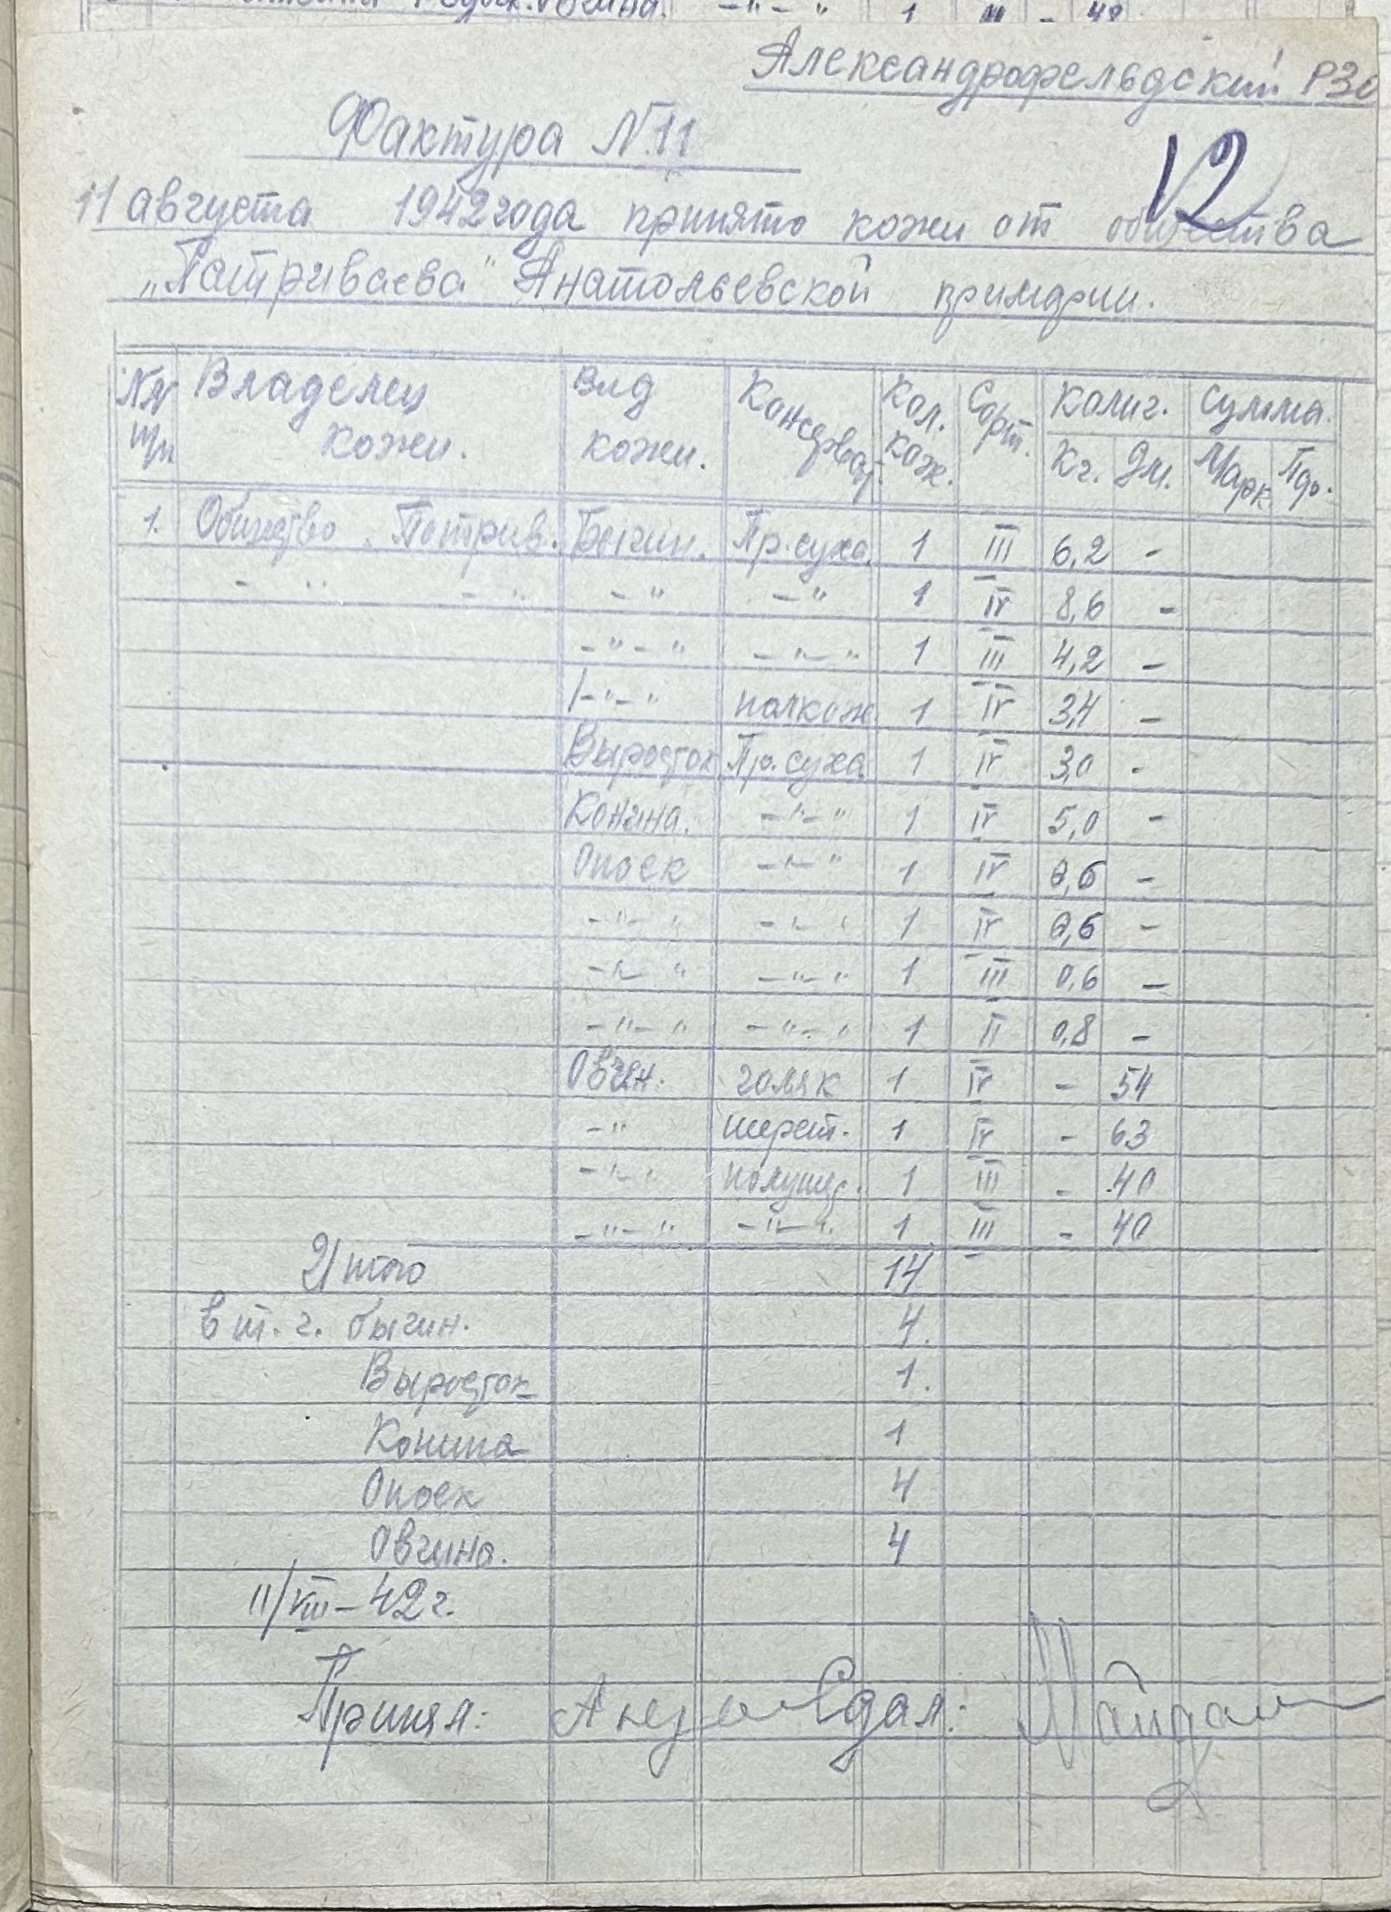 1 48
Александрофельдский РЗО
12
Фактура N.11
11 августа 1942 года принято кожи от общества
„Патриваева" Анатольевской примэрии.
NN п/п Владелец кожи. Вид кожи. Консерват. Кол. кож. Сорт. Колич. Кг. Дм. Сумма. Марк. Пф.
1. Общество Патрив. Бычин. Пр.суха. 1 III 6,2 -
- " - " - " - " 1 IV 8,6 -
- " - " - " - " 1 III 4,2 -
- " - " полкож 1 IV 3,4 -
Выросток Пр. суха 1 IV 3,0 -
Конина. - " - " 1 IV 5,0 -
Опоек - " - " 1 IV 0,6 -
- " - " - " - " 1 IV 0,6 -
- " - " - " - " 1 III 0,6 -
- " - " - " - " 1 II 0,8 -
Овчин. голяк 1 IV - 54
- " шерст. 1 IV - 63
- " - " полушер. 1 III - 40
- " - " - " - " 1 III - 40
Итого 14
в т. ч. бычин. 4.
Выросток 1.
Конина 1
Опоек 4
Овчина. 4
11/VIII – 42 г.
Принял: Сдал: